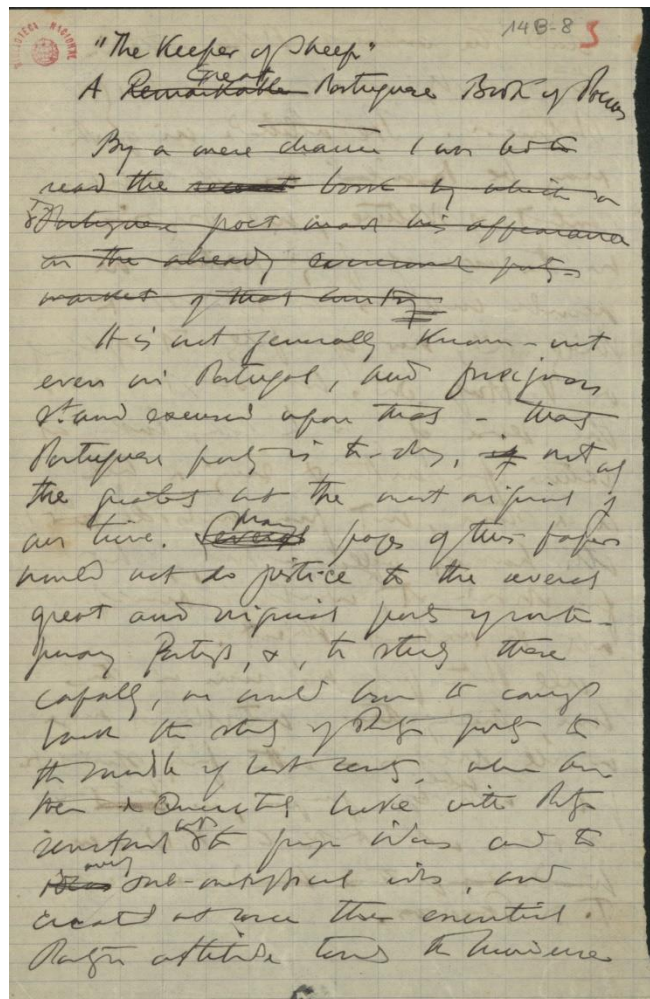 BIBLIOTECA NACIONAL
14B-8 5
"The Keeper of Sheep"
A Remarkable Great Portuguese Book of Poems
By a mere chance I was led to
read the recent book by which a
Portuguese poet made his appearance
in the already poetic
market of that country.
It is not generally known – not
even in Portugal, and foreigners
stand excused upon that – that
Portuguese poetry is to-day, if not of
the greatest the most original of
our time. Several Many pages of this paper
would not do justice to the several
great and original poets of contem-
porary Portugal, &, to study these
capably, we would have to carry
back the study of Portg poetry to
the middle of last century, when
Quental broke with Portg
and to
ideas sub-metaphysical ideas, and
created at once the essential
Portg attitude towards the Universe